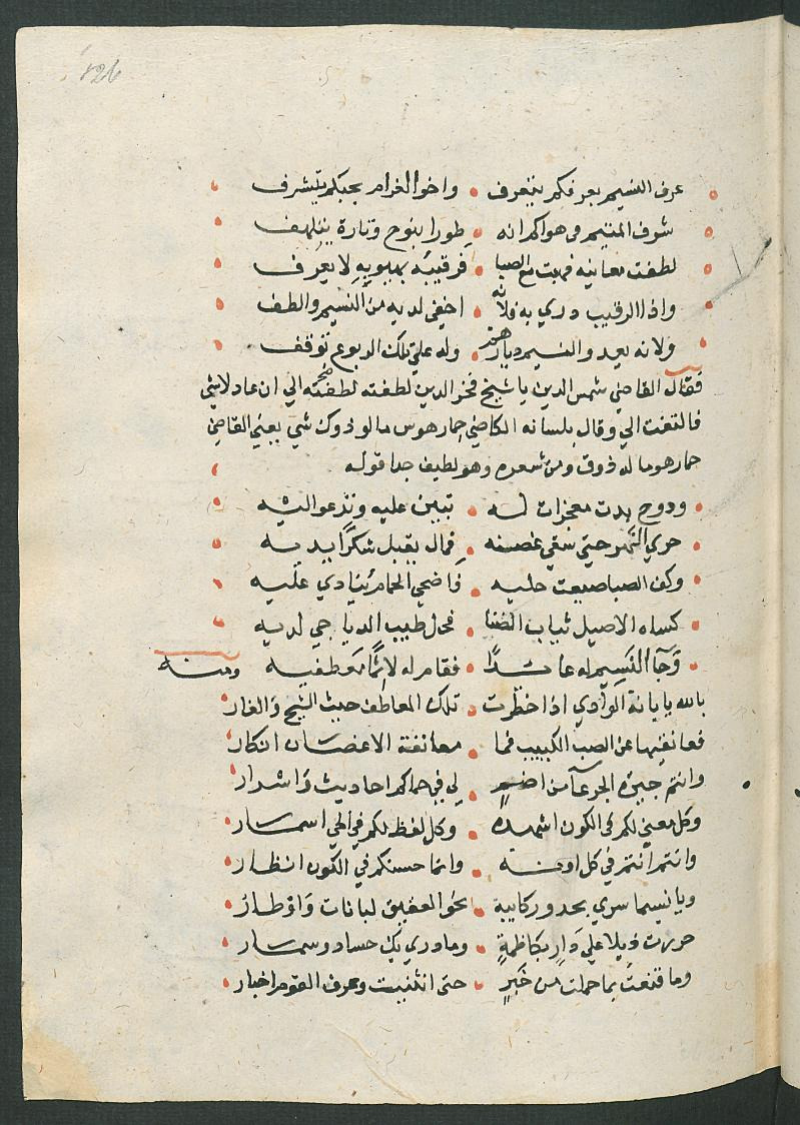 126
عرف النسيم بعرفكم يتعرف • واخو الغرام بحبكم يتشرف
شرف المتيم في هواكم انه • طورا ينوح وتارة يتلهف
لطفت معانيه فهبت مع الصبا • فرقيبه بهبوبه لا يعرف
واذا الرقيب دري به فلانه • اخفي لديه من النسيم والطف
ولانه يعد والنسيم ديارهم • وله علي تلك الربوع توقف
فقال القاضي شمس الدين يا شيخ فخر الدين لطفته لطفته الي ان عاد لا شي
فالتفت الي وقال بلسانه الكاضي حمار هوس مالو ذوك شي يعني القاضي
حمار هو ما له ذوق ومن شعره وهو لطيف جدا قوله
ودوح بدت معجزات له • تبين عليه وتدعو اليه
جري النهر حتي سقي غصنه • فمال يقبل شكرا يديه
وكف الصبا صبغت حليه • فاضحي الحمام ينادي عليه
كساه الاصيل ثياب الضنا • فحل طبيب الدياجي لديه
وجا النسيم له عائدا • فقام له لاثما معطفيه ومنه
بالله يا بانة الوادي اذا خطرت • تلك المعاطف حيث الشيح والغار
فعانقيها عن الصب الكئيب فما • معانقة الاغصان انكار
وانتم جيرة الجرعا من اضم • لي في حماكم احاديث واسرار
وكل معني لكم في الكون اشهده • وكل لفظ لكم في الحي اسمار
وانتم انتم في كل اونة • وانما حسنكم في الكون انظار
ويا نسيما سري يحدو ركايبه • نحو العقيق لبانات واوطار
جررت ذيلا علي دار بكاظمة • وما دري بك حساد وسمار
وما قنعت بما حملت من خبر • حتي انثنيت وعرف القوم اخبار